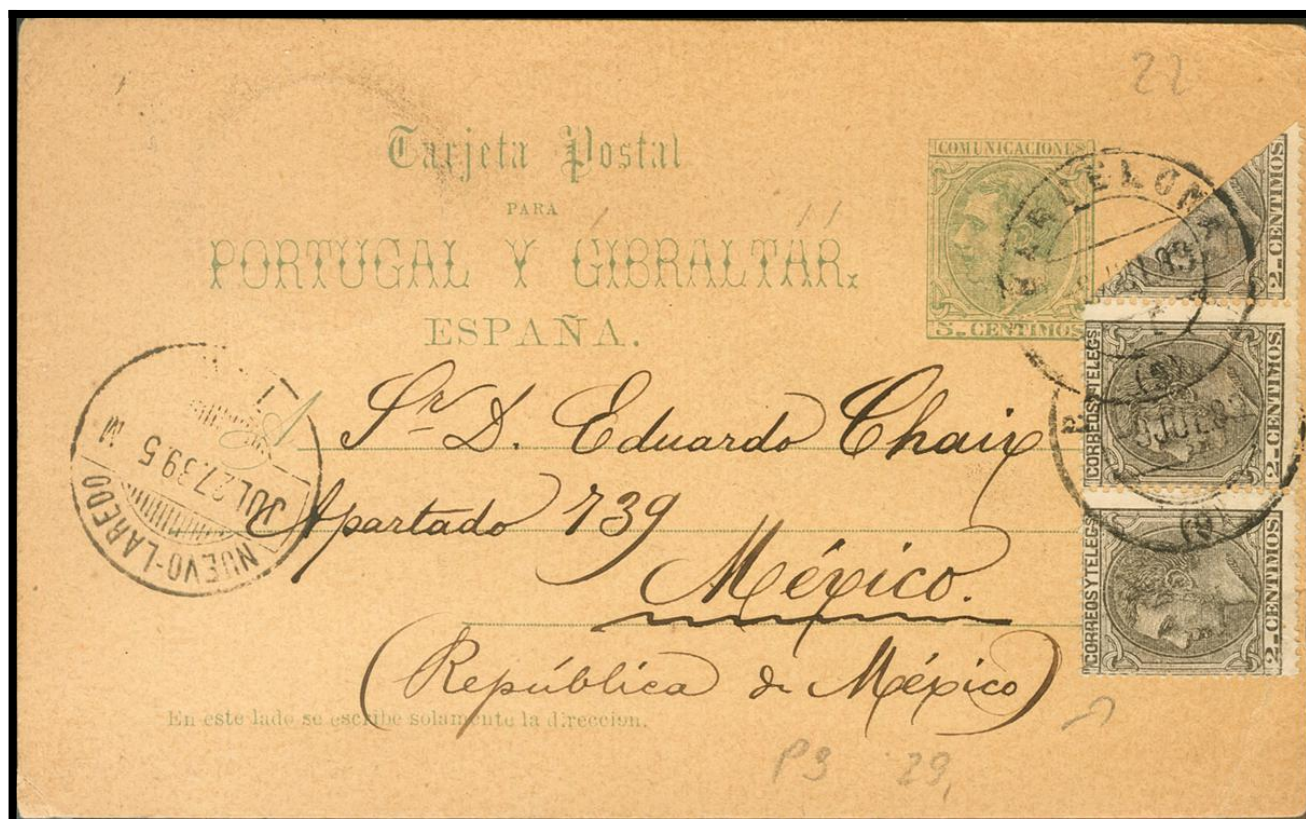 22
Tarjeta Postal
PARA
PORTUGAL Y GIBRALTAR.
ESPAÑA.
COMUNICACIONES
5 CENTIMOS
2 CENTIMOS
BARCELONA
CORREOS Y TELEGS
2 CENTIMOS
CORREOS Y TELEGS
2 CENTIMOS
NUEVO-LAREDO
JUL 27.
Sr D. Eduardo Chaix
Apartado 739
México.
(República de México)
En este lado se escribe solamente la direccion.
P9 29,